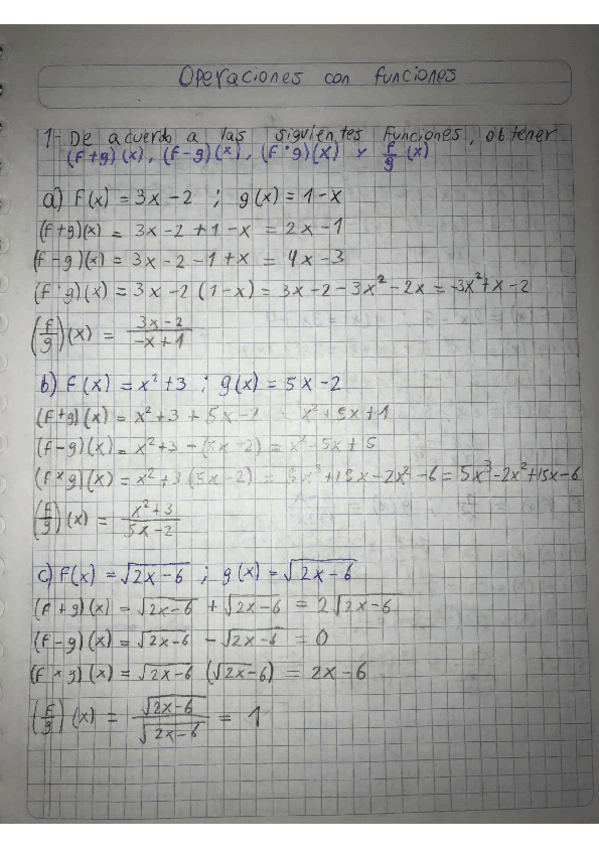 Operaciones con funciones
1- De acuerdo a las siguientes funciones, obtener
(f+g)(x), (f-g)(x), (f·g)(x) y f/g (x)
a) f(x) = 3x-2 ; g(x) = 1-x
(f+g)(x) = 3x-2+1-x = 2x-1
(f-g)(x) = 3x-2-1+x = 4x-3
(f·g)(x) = 3x-2(1-x) = 3x-2-3x²-2x = -3x²+x-2
(f/g)(x) = (3x-2)/(-x+1)
b) f(x) = x²+3 ; g(x) = 5x-2
(f+g)(x) = x²+3+5x-2 x²+5x+1
(f-g)(x) = x²+3-(5x-2) = x²-5x+5
(f×g)(x) = x²+3(5x-2) = 5x³+15x-2x²-6 = 5x³-2x²+15x-6
(f/g)(x) = (x²+3)/(5x-2)
c) f(x) = √(2x-6) ; g(x) = √(2x-6)
(f+g)(x) = √(2x-6) + √(2x-6) = 2√(2x-6)
(f-g)(x) = √(2x-6) - √(2x-6) = 0
(f×g)(x) = √(2x-6) (√(2x-6)) = 2x-6
(f/g)(x) = √(2x-6)/√(2x-6) = 1